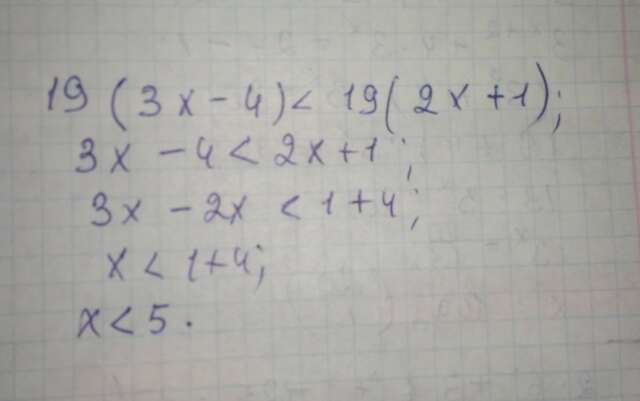 19 (3x - 4) < 19 (2x + 1);
3x - 4 < 2x + 1;
3x - 2x < 1 + 4;
x < 1 + 4;
x < 5.